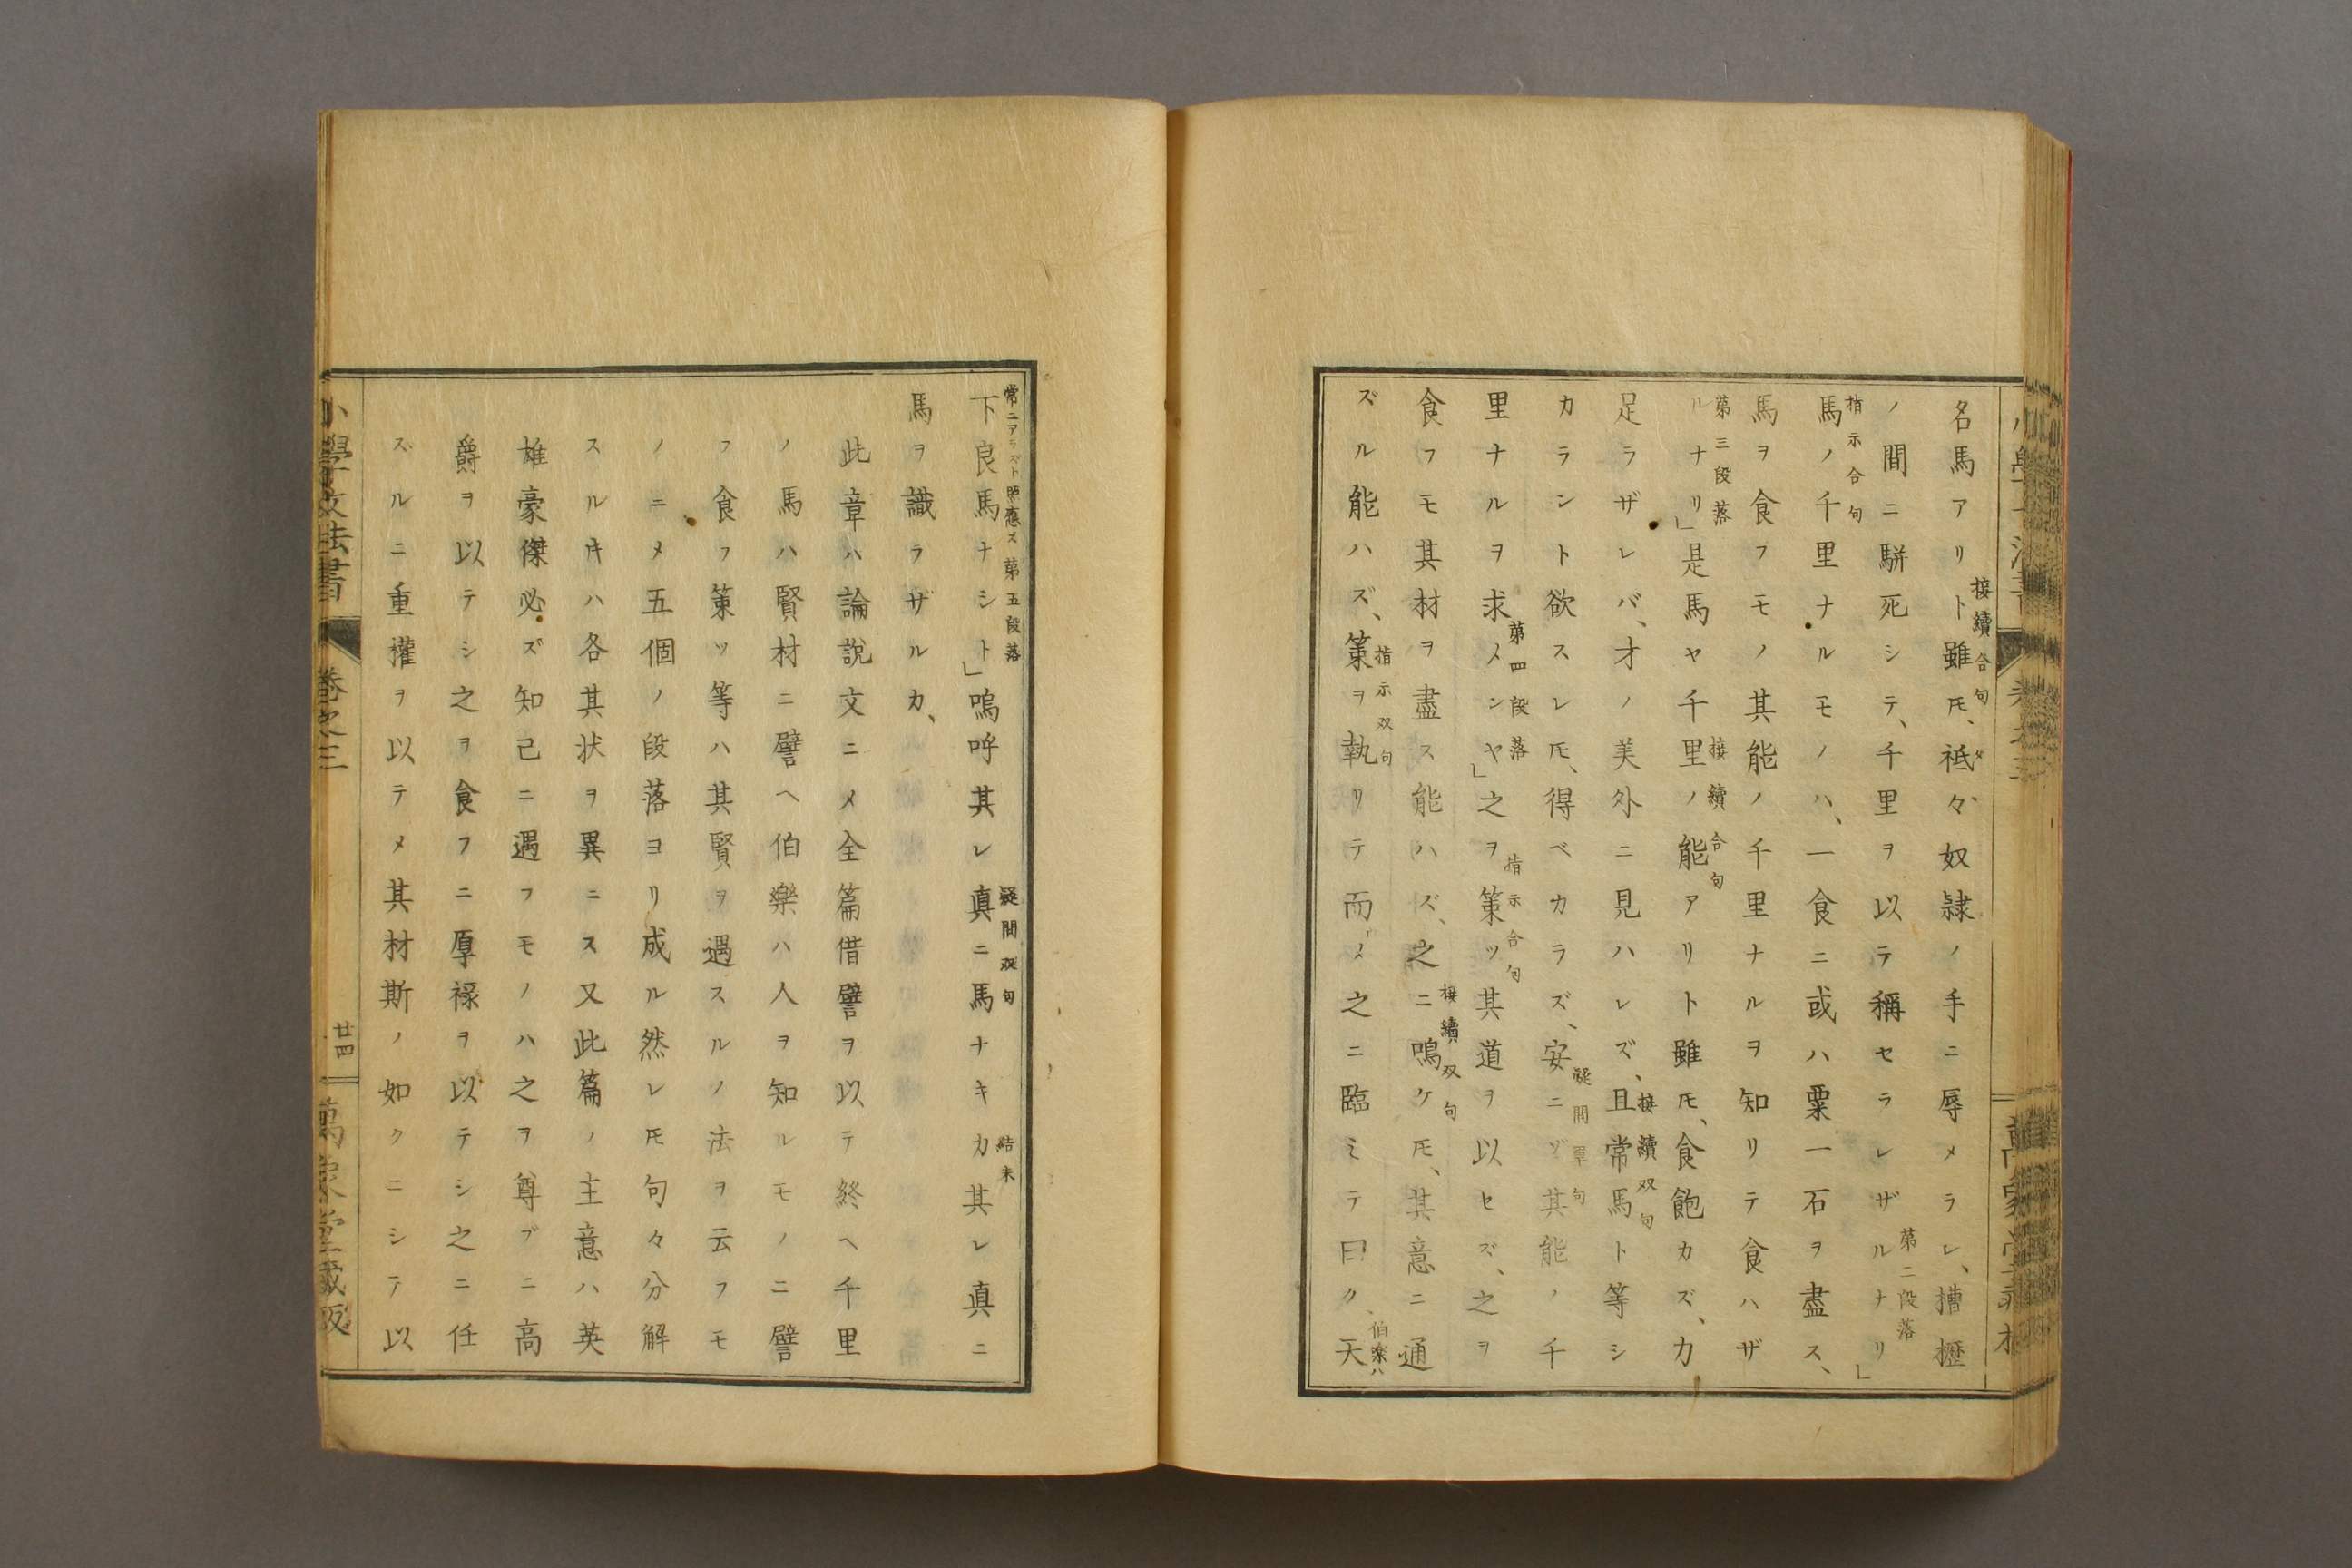 名馬アリト雖𪜈、祗々奴隷ノ手ニ辱メラレ、槽櫪
接續合句
ノ間ニ駢死シテ、千里ヲ以テ稱セラレザルナリ」
第二段落
馬ノ千里ナルモノハ、一食ニ或ハ粟一石ヲ盡ス、
指示合句
馬ヲ食フモノ其能ノ千里ナルヲ知リテ食ハザ
ルナリ」是馬ヤ千里ノ能アリト雖𪜈、食飽カズ、力
第三段落
接續合句
足ラザレバ、才ノ美外ニ見ハレズ、且常馬ト等シ
接續双句
カラント欲スレ𪜈、得ベカラズ、安ニゾ其能ノ千
疑問單句
里ナルヲ求メンヤ」之ヲ策ツ其道ヲ以セズ、之ヲ
第四段落
指示合句
食フモ其材ヲ盡ス能ハズ、之ニ鳴ケ𪜈、其意ニ通
接續双句
ズル能ハズ、策ヲ執リテ而〆之ニ臨ミテ曰ク、天
指示双句
伯楽ハ
常ニアラズト照應ス
第五段落
下良馬ナシト」嗚呼其レ真ニ馬ナキカ其レ真ニ
疑問双句
結末
馬ヲ識ラザルカ、
此章ハ論説文ニ〆全篇借譬ヲ以テ終ヘ千里
ノ馬ハ賢材ニ譬ヘ伯樂ハ人ヲ知ルモノニ譬
フ食フ策ツ等ハ其賢ヲ遇スルノ法ヲ云フモ
ノニ〆五個ノ段落ヨリ成ル然レ𪜈句々分解
スルキハ各其状ヲ異ニス又此篇ノ主意ハ英
雄豪傑必ズ知己ニ遇フモノハ之ヲ尊ブニ高
爵ヲ以テシ之ヲ食フニ厚禄ヲ以テシ之ニ任
ズルニ重權ヲ以テ〆其材斯ノ如クニシテ以
小學文法書
卷之三
廿四
萬象堂藏版